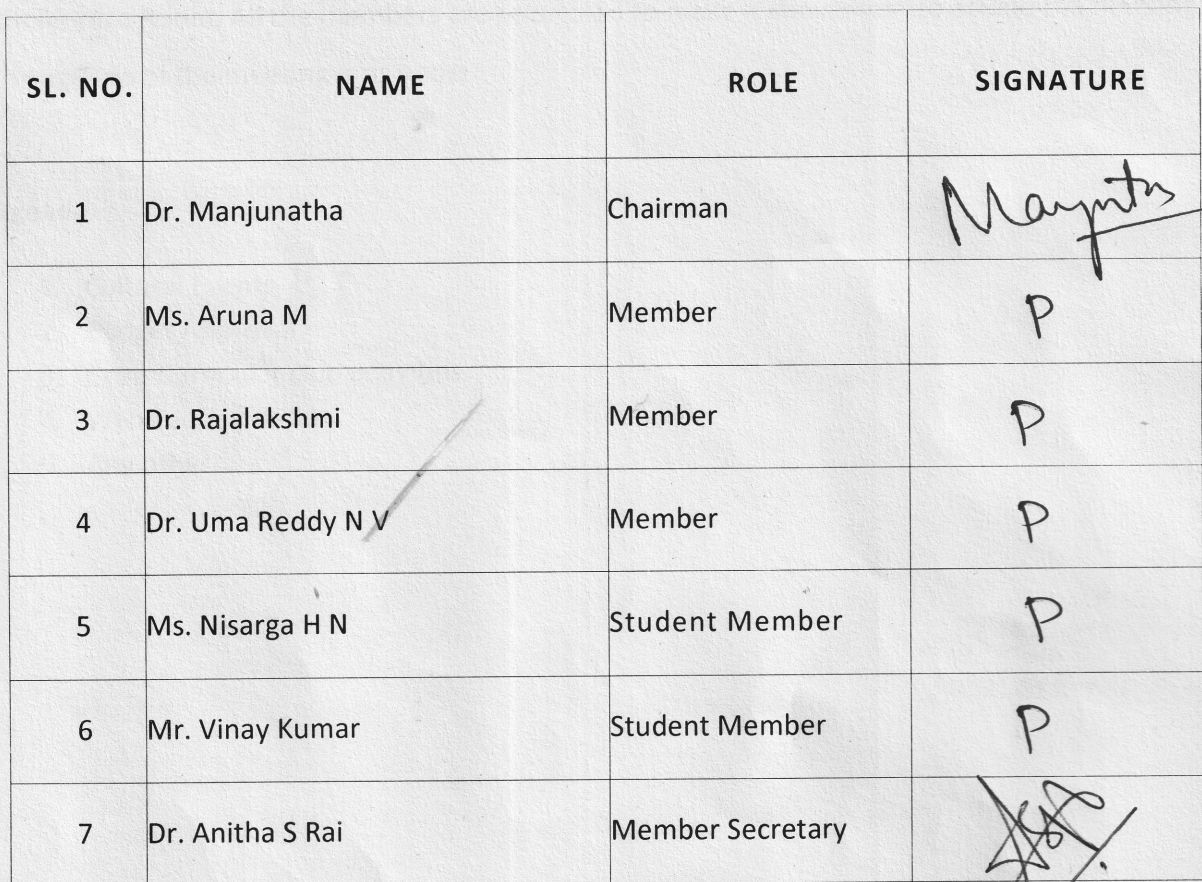 SL. NO. NAME ROLE SIGNATURE
1 Dr. Manjunatha Chairman
2 Ms. Aruna M Member P
3 Dr. Rajalakshmi Member P
4 Dr. Uma Reddy N V Member P
5 Ms. Nisarga H N Student Member P
6 Mr. Vinay Kumar Student Member P
7 Dr. Anitha S Rai Member Secretary